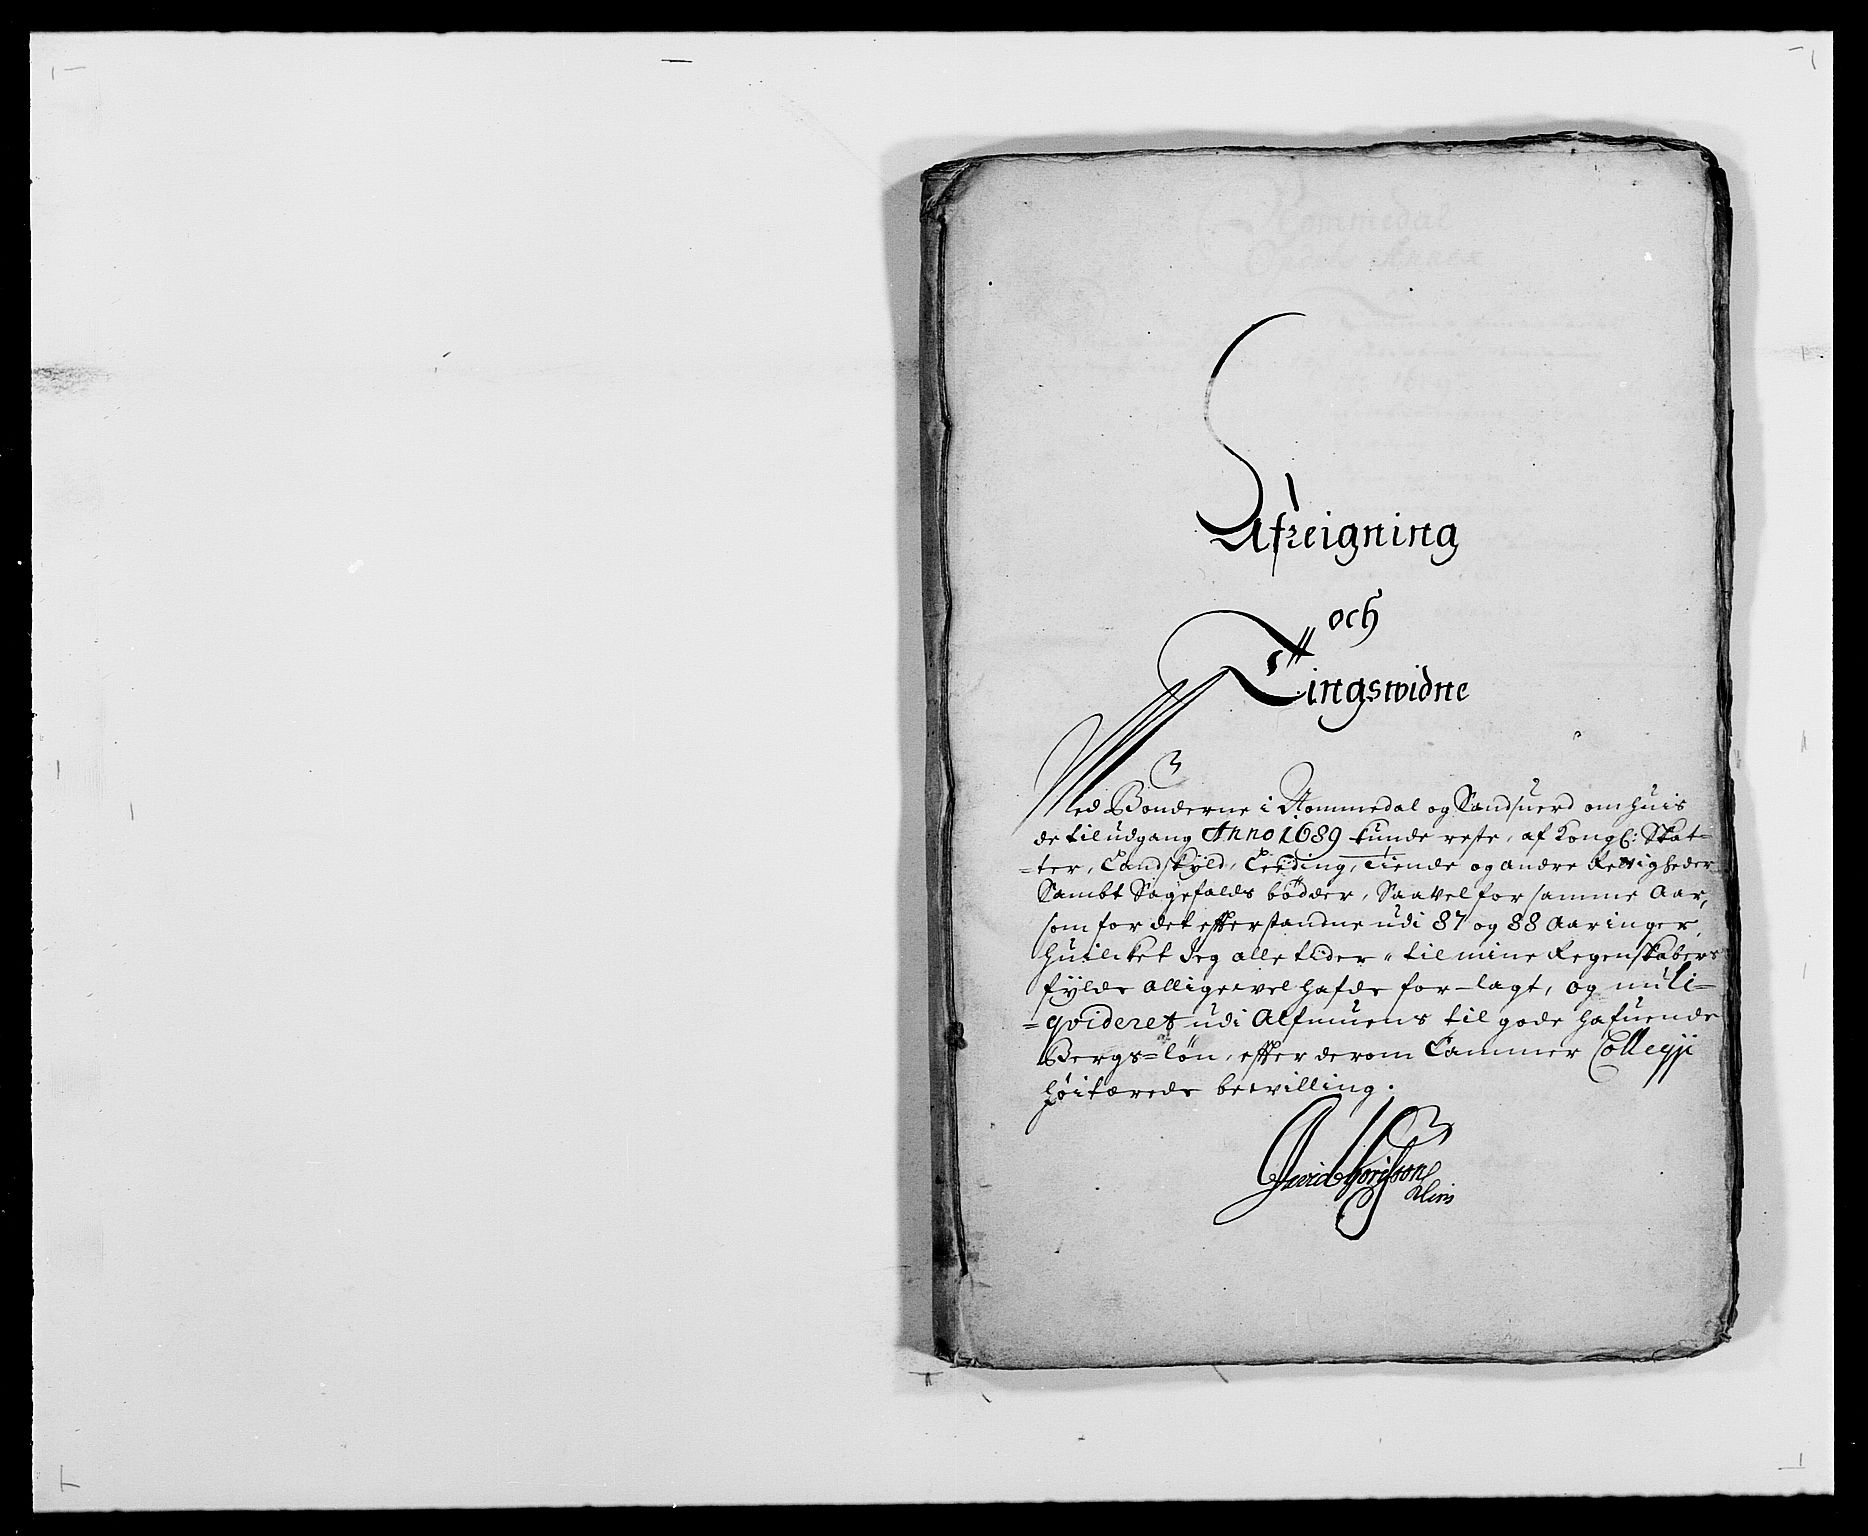 Afreigning
och
Tingswidne
Med Bønderne i Nommedal og Sandsuerd om huis
de til udgang Anno 1689 kunde reste, af Kongl: Skat-
=ter, Landskyld, Leeding, Tiende og andre Rettigheder
Sambt Sagefalds bødder, Saavel for samme Aar,
som for det efterstandne udi 87 og 88 Aaringer,
huilcket Jeg alle tider til mine Regenskabers
fylde alligevel hafde for-lagt, og nu li-
=qvideret udi Almuens til gode hafuende
Bergs=løn, efter derom Cammer Collegii
høitærede bewilling.